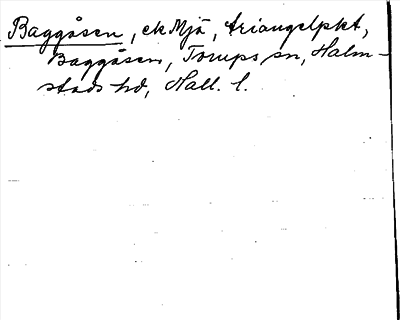 Baggåsen, ek Mjä, triangelpkt,
Baggåsen, Torups sn, Halm-
stads hd, Hall. l.